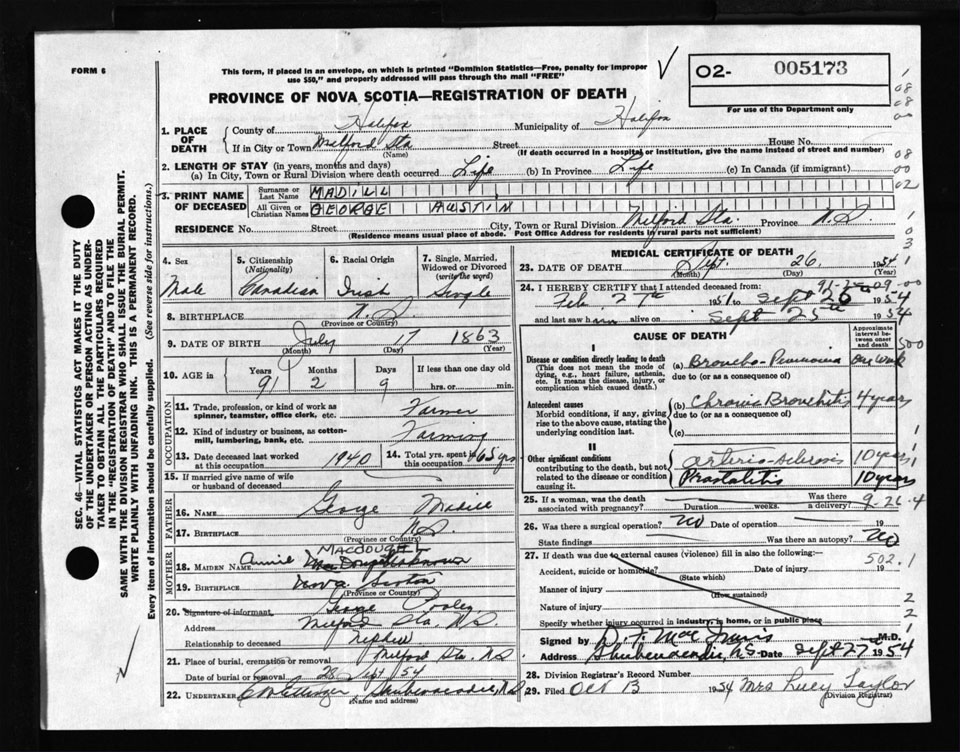 FORM 6
This form, if placed in an envelope, on which is printed "Dominion Statistics—Free, penalty for improper
use $50," and properly addressed will pass through the mail "FREE"
02- 005173
For use of the Department only
PROVINCE OF NOVA SCOTIA—REGISTRATION OF DEATH
1. PLACE OF DEATH
County of Halifax Municipality of Halifax
If in City or Town Milford Sta Street House No.
(Name) (If death occurred in a hospital or institution, give the name instead of street and number)
2. LENGTH OF STAY (in years, months and days)
(a) In City, Town or Rural Division where death occurred Life (b) In Province Life (c) In Canada (if immigrant)
3. PRINT NAME OF DECEASED
Surname or Last Name MADILL
All Given or Christian Names GEORGE AUSTIN
RESIDENCE No. Street City, Town or Rural Division Milford Sta. Province N.S.
(Residence means usual place of abode. Post Office Address for residents in rural parts not sufficient)
SEC. 46—VITAL STATISTICS ACT MAKES IT THE DUTY
OF THE UNDERTAKER OR PERSON ACTING AS UNDER-
TAKER TO OBTAIN ALL THE PARTICULARS REQUIRED
IN THE "REGISTRATION OF DEATH" AND TO FILE THE
SAME WITH THE DIVISION REGISTRAR WHO SHALL ISSUE THE BURIAL PERMIT.
WRITE PLAINLY WITH UNFADING INK. THIS IS A PERMANENT RECORD.
Every item of information should be carefully supplied. (See reverse side for instructions.)
4. Sex Male
5. Citizenship (Nationality) Canadian
6. Racial Origin Irish
7. Single, Married, Widowed or Divorced (write the word) Single
8. BIRTHPLACE N.S.
(Province or Country)
9. DATE OF BIRTH July 17 1863
(Month) (Day) (Year)
10. AGE in Years 91 Months 2 Days 9 If less than one day old
hrs. or min.
OCCUPATION
11. Trade, profession, or kind of work as spinner, teamster, office clerk, etc. Farmer
12. Kind of industry or business, as cotton-mill, lumbering, bank, etc. Farming
13. Date deceased last worked at this occupation 1940
14. Total yrs. spent in this occupation 65 yrs
15. If married give name of wife or husband of deceased
FATHER
16. NAME George Madill
17. BIRTHPLACE N.S.
(Province or Country)
MOTHER
18. MAIDEN NAME Annie MACDOUGALL
19. BIRTHPLACE Nova Scotia
(Province or Country)
20. Signature of informant George
Address Milford Sta, N.S.
Relationship to deceased nephew
21. Place of burial, cremation or removal Milford Sta. N.S.
Date of burial or removal 28 Sept 54
22. UNDERTAKER Shubenacadie, N.S.
(Name and address)
MEDICAL CERTIFICATE OF DEATH
23. DATE OF DEATH Sept. 26, 1954
(Month) (Day) (Year)
24. I HEREBY CERTIFY that I attended deceased from:
Feb 27th 1951 to Sept 26 1954
and last saw him alive on Sept 25th 1954
CAUSE OF DEATH
Approximate interval between onset and death
I
Disease or condition directly leading to death
(This does not mean the mode of dying, e.g., heart failure, asthenia, etc. It means the disease, injury, or complication which caused death.)
(a) Broncho-Pneumonia One Week
due to (or as a consequence of)
Antecedent causes
Morbid conditions, if any, giving rise to the above cause, stating the underlying condition last.
(b) Chronic Bronchitis 4 years
due to (or as a consequence of)
(c)
II
Other significant conditions
contributing to the death, but not related to the disease or condition causing it.
Arterio-sclerosis 10 years
Prostatitis 10 years
25. If a woman, was the death associated with pregnancy? Duration weeks. Was there a delivery? 9-26-4
26. Was there a surgical operation? No Date of operation 19
State findings Was there an autopsy? No
27. If death was due to external causes (violence) fill in also the following:—
Accident, suicide or homicide? Date of injury 19 502.1
(State which)
Manner of injury
(How sustained)
Nature of injury
Specify whether injury occurred in industry, in home, or in public place
Signed by M.D.
Address Shubenacadie, N.S. Date Sept 27 1954
28. Division Registrar's Record Number
29. Filed Oct 13 1954 Mrs Lucy Taylor
(Division Registrar)